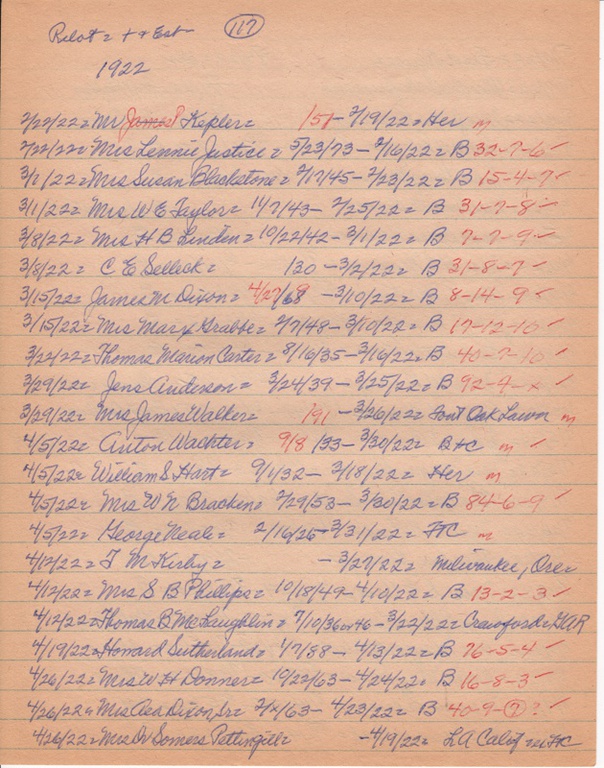 Pilot = + & Est (117)
1922
2/22/22 = Mr James P Kepler = /51 - 2/19/22 = Her m
2/22/22 = Mrs Lennie Justice = 5/23/73 - 2/16/22 = B 32-7-6 ✓
3/1/22 = Mrs Susan Blackstone = 2/17/45 - 2/23/22 = B 15-4-7 ✓
3/1/22 = Mrs W E Taylor = 11/7/43 - 2/25/22 = B 31-7-8 ✓
3/8/22 = Mrs H B Linden = 10/22/42 - 3/1/22 = B 7-7-9 ✓
3/8/22 = C E Selleck = /20 - 3/2/22 = B 31-8-7 ✓
3/15/22 = James M Dixon = 4/27/68 9 - 3/10/22 = B 8-14-9 ✓
3/15/22 = Mrs Mary Grabbe = 2/7/48 - 3/10/22 = B 17-12-10 ✓
3/22/22 = Thomas Marion Carter = 8/16/35 - 3/16/22 = B 40-7-10 ✓
3/29/22 = Jens Anderson = 3/24/39 - 3/25/22 = B 92-9-x ✓
3/29/22 = Mrs James Walker = /91 - 3/26/22 = Font Oak Lawn m
4/5/22 = Anton Wachter = 9/8/33 - 3/30/22 = B + C m ✓
4/5/22 = William S Hart = 9/1/32 - 3/18/22 = Her m
4/5/22 = Mrs W N Bracken = 2/29/53 - 3/30/22 = B 84-6-9 ✓
4/5/22 = George Neal = 2/16/25 - 3/31/22 = FC m
4/12/22 = T M Kirby = - 3/27/22 = Milwaukee, Ore =
4/12/22 = Mrs S B Phillips = 10/18/49 - 4/10/22 = B 13-2-3 ✓
4/12/22 = Thomas B McLaughlin = 7/10/36 or 46 - 3/22/22 = Crawford = GAR
4/19/22 = Howard Sutherland = 1/7/88 - 4/13/22 = B 76-5-4 ✓
4/26/22 = Mrs W H Donner = 10/22/63 - 4/24/22 = B 16-8-3 ✓
4/26/22 = Mrs Asa Dixon Sr = 2/x/63 - 4/23/22 = B 40-9-(7)? ✓
4/26/22 = Mrs Dr Somers Pettingill = - 4/19/22 = LA Calif FC